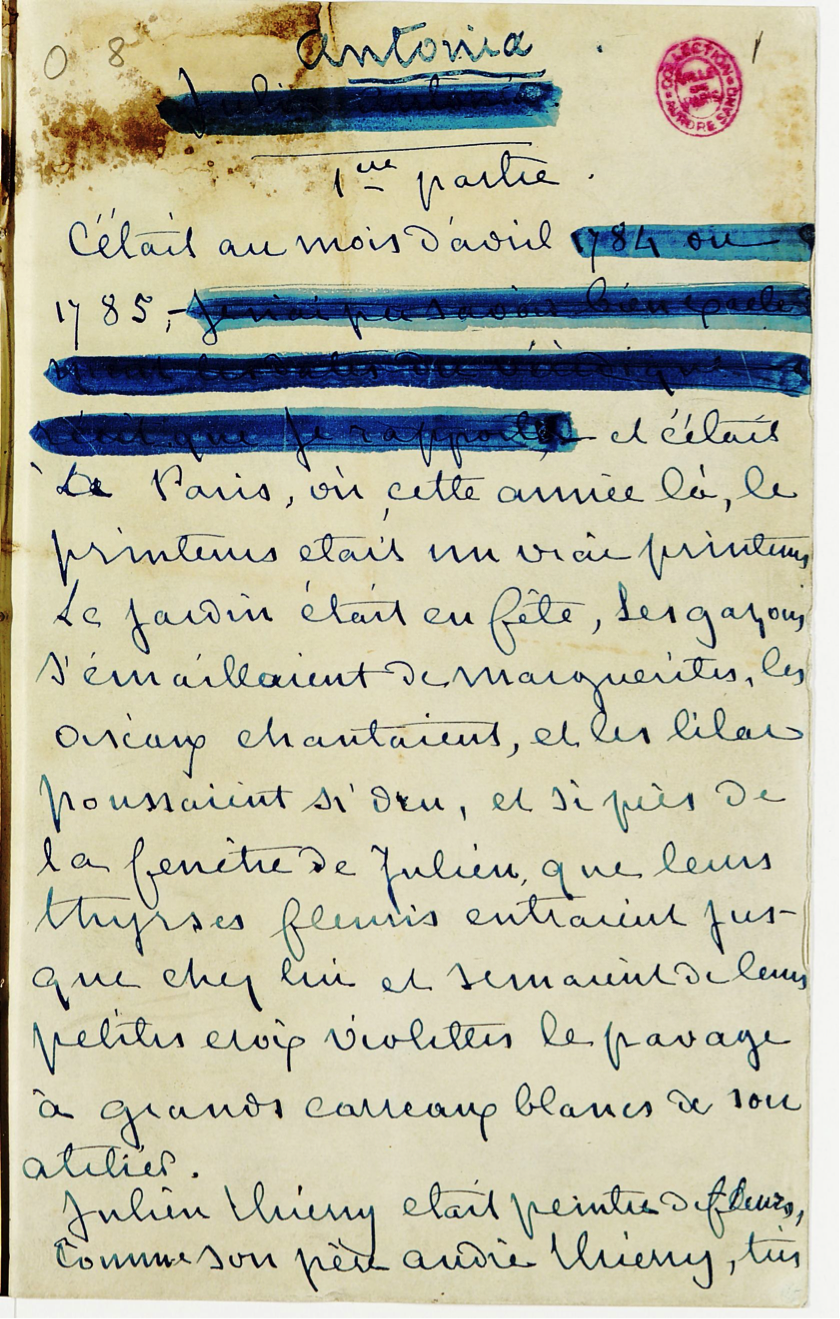 0 8
1
Antonia
COLLECTION AURORE SAND
VILLE DE PARIS
Julien
1re partie.
C'était au mois d'avril 1784 ou
1785, - Je n'ai pu savoir bien exacte
ment les dates du véridique
récit que je rapporte, et c'était
à Paris, où, cette année là, le
printems etait un vrai printems
Le jardin était en fête, Les gazons
s'émaillaient de marguerites, les
oiseaux chantaient, et les lilas
poussaient si dru, et si près de
la fenêtre de Julien, que leurs
thyrses fleuris entraient jus-
que chez lui et semaient de leurs
petites croix violettes le pavage
à grands carreaux blancs de son
atelier.
Julien Thierry etait peintre de fleurs,
comme son père andré Thierry, très